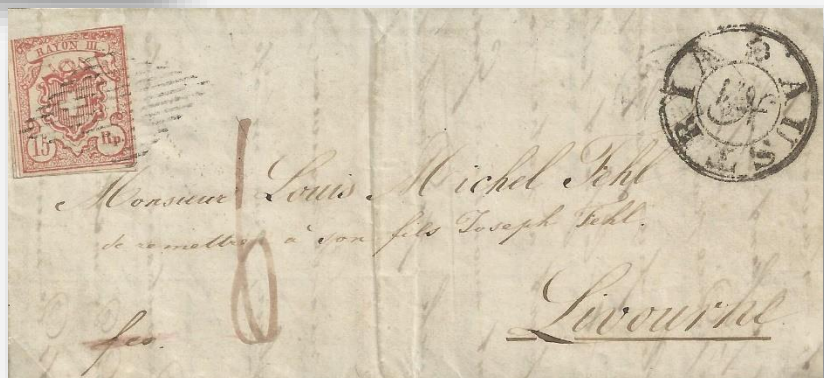 RAYON III.
15 Rp.
AUSTRIA
Monsieur Louis Michel Fehl
de remettre à son fils Joseph Fehl.
6
Livourne
fco.